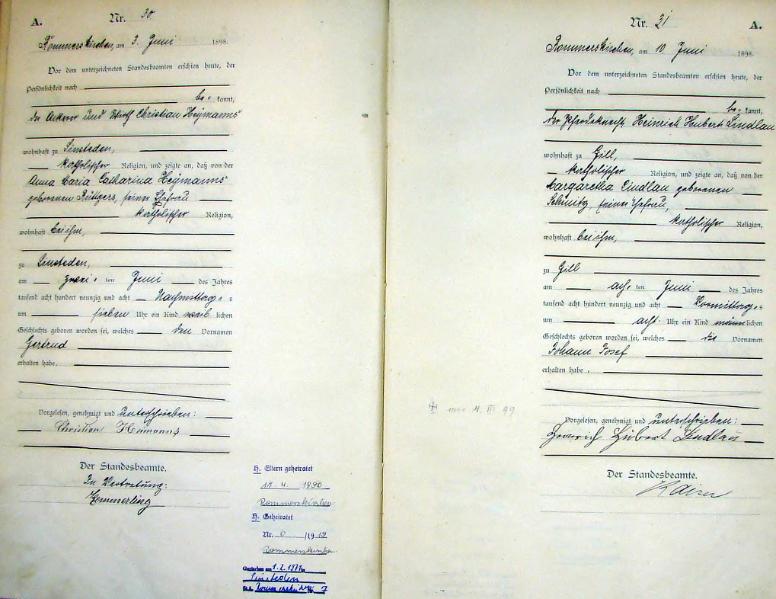 A.
Nr. 30
Rommerskirchen, am 3. Juni 1898.
Vor dem unterzeichneten Standesbeamten erschien heute, der
Persönlichkeit nach
be- kannt,
der Ackerer und Wirth Christian Heÿmanns
wohnhaft zu Sinsteden,
katholischer Religion, und zeigte an, daß von der
Anna Maria Catharina Heÿmanns
geborenen Rüttgers, seiner Ehefrau
katholischer Religion,
wohnhaft bei ihm,
zu Sinsteden,
am zwei- ten Juni des Jahres
tausend acht hundert neunzig und acht Nachmittag- s
um sieben Uhr ein Kind weib- lichen
Geschlechts geboren worden sei, welches den Vornamen
Gertrud
erhalten habe.
Vorgelesen, genehmigt und unterschrieben:
Christian Heimanns
Der Standesbeamte.
In Vertretung:
Emmerling
H. Eltern geheiratet
4. 1890
Rommerskirchen
H. Geheiratet
Nr. /19
Rommerskirchen
Gestorben am 1.2.
Sinsteden
Nr. 31
A.
Rommerskirchen, am 10 Juni 1898.
Vor dem unterzeichneten Standesbeamten erschien heute, der
Persönlichkeit nach
be- kannt,
der Pferdeknecht Heinrich Hubert Lindlau
wohnhaft zu Gill,
katholischer Religion, und zeigte an, daß von der
Margaretha Lindlau geborenen
Schmitz, seiner Ehefrau,
katholischer Religion,
wohnhaft bei ihm,
zu Gill
am ach- ten Juni des Jahres
tausend acht hundert neunzig und acht Vormittag- s
um acht Uhr ein Kind männ- lichen
Geschlechts geboren worden sei, welches die Vornamen
Johann Josef
erhalten habe.
Vorgelesen, genehmigt und unterschrieben:
Heinrich Hubert Lindlau
Der Standesbeamte.
Kaiser